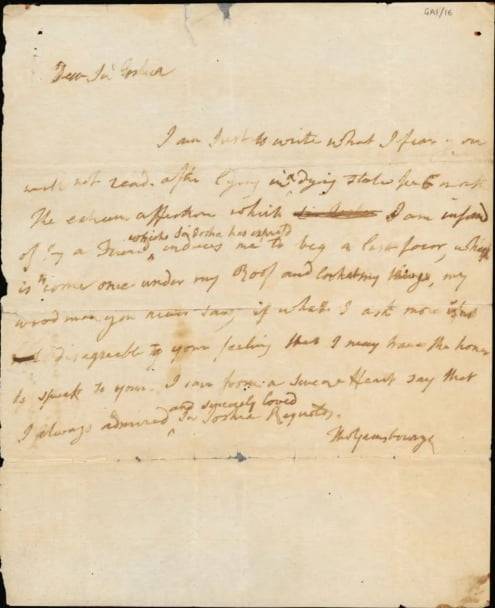 GAI/16
Dear Sir Joshua
I am Just to write what I fear you
will not read. after lying in a dying state for 6 month
The extreem affection which Sir Joshua I am informd
which Sir Joshua has expresd
of by a Friend induces me to beg a last favor, which
is to come once under my Roof and look at my things, my
woodman you never saw, if what I ask more is not
disagreable to your feeling that I may have the honor
to speak to you. I can from a sincere Heart say that
and sincerely loved
I always admired Sir Joshua Reynolds.
Tho Gainsborough